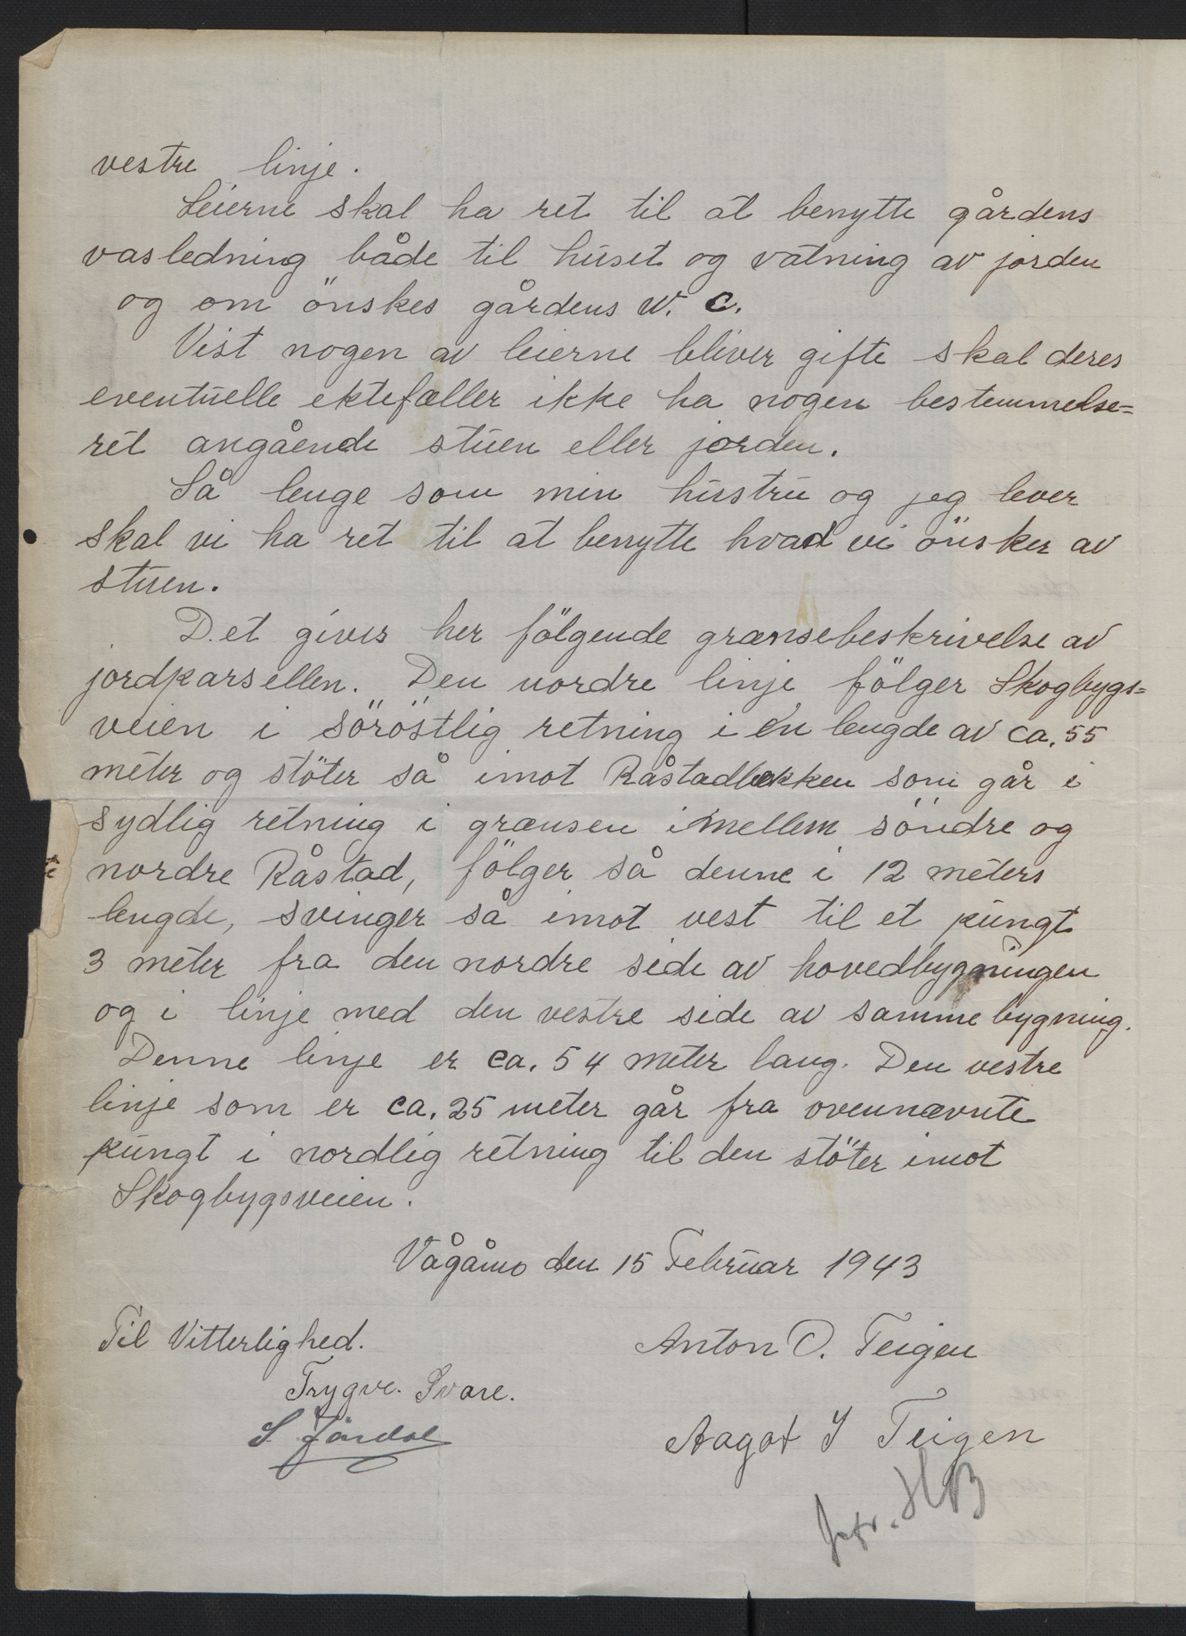 vestre linje.
Leierne skal ha ret til at benytte gårdens
vasledning både til huset og vatning av jorden
og om önskes gårdens W. C.
Vist nogen av leierne bliver gifte skal deres
eventuelle ektefæller ikke ha nogen bestemmelse=
ret angående stuen eller jorden.
Så lenge som min hustru og jeg lever
skal vi ha ret til at benytte hvad vi önsker av
stuen.
Det gives her fölgende grænsebeskrivelse av
jordparsellen. Den nordre linje fölger Skogbygs=
veien i söröstlig retning i en lengde av ca. 55
meter og stöter så imot Råstadbekken som går i
sydlig retning i grænsen imellem söndre og
nordre Råstad, fölger så denne i 12 meters
lengde, svinger så imot vest til et pungt
3 meter fra den nordre side av hovedbygningen
og i linje med den vestre side av samme bygning.
Denne linje er ca. 54 meter lang. Den vestre
linje som er ca. 25 meter går fra ovennævnte
pungt i nordlig retning til den stöter imot
Skogbygsveien.
Vågåmo den 15 Februar 1943
Til Vitterlighed.
Anton O. Teigen
Trygve Svare.
S. Jördal
Aagot I Teigen